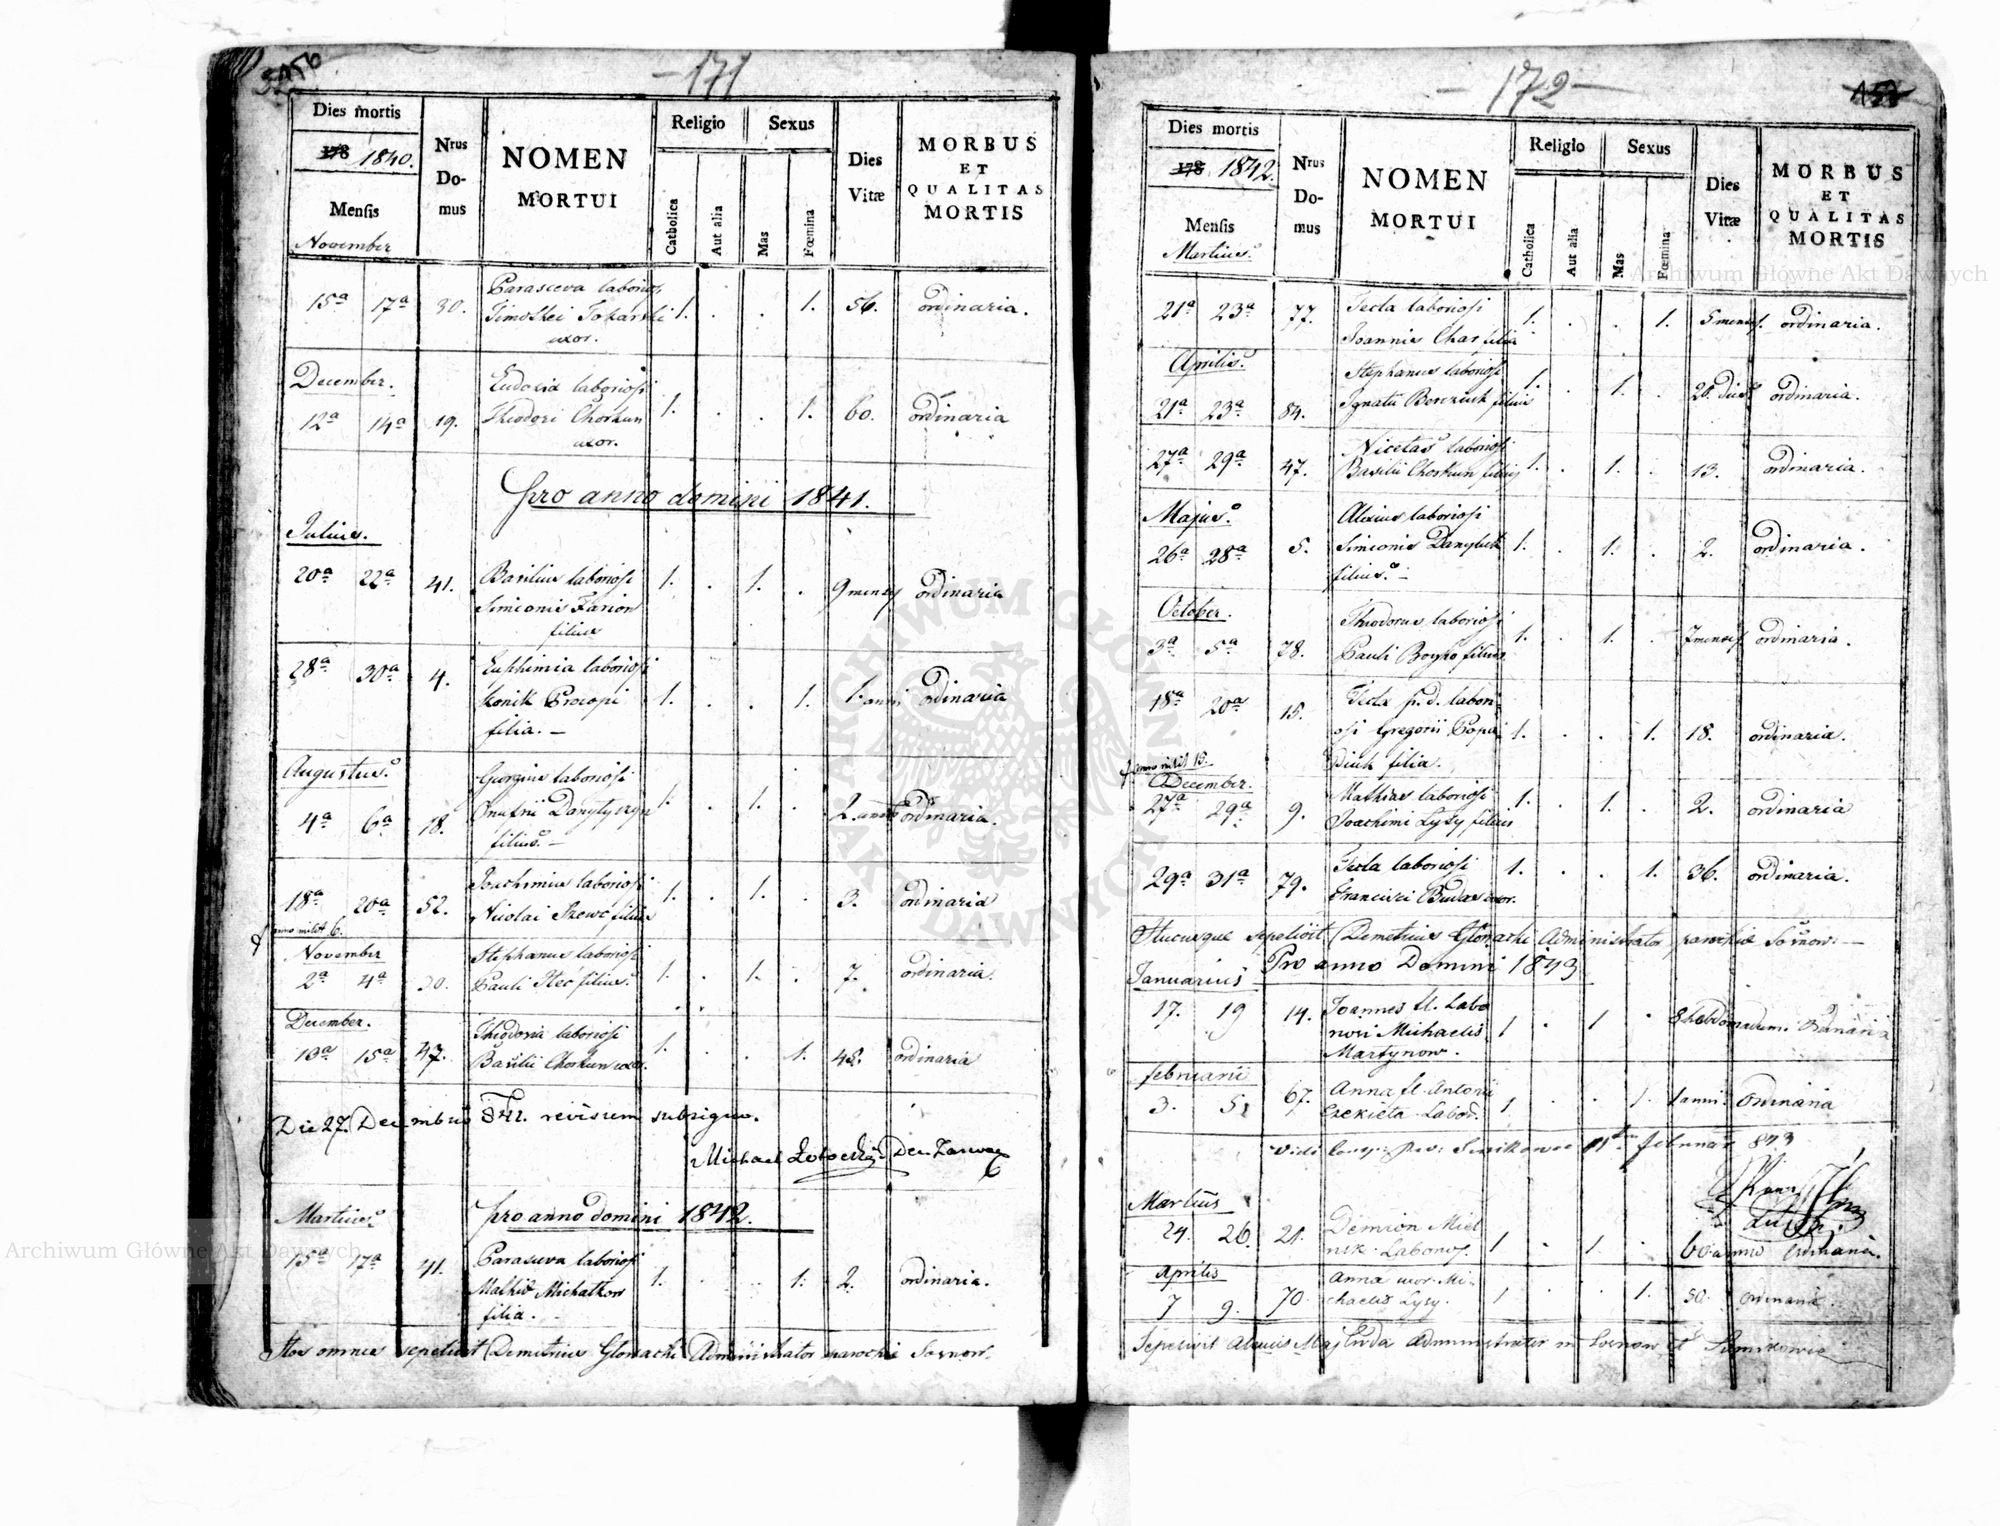 - 171
Dies mortis
1840.
Mensis
November
Nrus
Do-
mus
NOMEN
MORTUI
Religio
Sexus
Catholica
Aut alia
Mas
Fœmina
Dies
Vitæ
MORBUS
ET
QUALITAS
MORTIS
Parasceva laboriosi
15a 17a 30. Timothei Tokarski 1. . . 1. 56. ordinaria.
uxor.
December. Eudoxia laboriosi
12a 14a 19. Theodori Chorkun 1. . . 1. 60. ordinaria
uxor.
pro anno domini 1841.
Julius.
20a 22a 41. Basilius laboriosi 1. . 1. . 9 mens ordinaria
Simeonis Farion
filius
28a 30a 4. Euphimia laboriosi
Konik Procopi 1. . . 1. 1. anni ordinaria
filia. -
Augustus. Georgius laboriosi
4a 6a 18. Onufrii Danylyszyn 1. . 1. . 2. ordinaria.
filius. -
Joachimus laboriosi
18a 20a 52. Nicolai Szewc filius 1. . 1. . 3. ordinaria
November Stephanus laboriosi
2a 4a 30. Pauli Stec filius. 1. . 1. . 7. ordinaria.
December. Theodora laboriosi
13a 15a 47. Basilii Chorkun uxor. 1. . . 1. 45. ordinaria
Die 27. Decembris 841. revisum subsigno.
Michael
Martius. pro anno domini 1842.
15a 17a 41. Parasceva laboriosi 1. . . 1. 2. ordinaria.
Mathia Michatkow
filia. -
Hos omnes sepelivit Demetrius Glowacki Administrator parochie Sosnow.
- 172 -
Dies mortis
1842.
Mensis
Martius.
Nrus
Do-
mus
NOMEN
MORTUI
Religio
Sexus
Catholica
Aut alia
Mas
Fœmina
Dies
Vitæ
MORBUS
ET
QUALITAS
MORTIS
21a 23a 77. Tecla laboriosi 1. . . 1. 5 mens. ordinaria.
Joannis Char filia
Aprilis. Stephanus laboriosi
21a 23a 84. Ignatii filius 1. . 1. . 20. dies ordinaria.
27a 29a 47. Nicetas laboriosi
Basilii Chorkun filius 1. . 1. . 13. ordinaria.
Majus. Alexius laboriosi
26a 28a 5. Simeonis 1. . 1. . 2. ordinaria.
filius. -
October. Theodorus laboriosi
3a 5a 78. Pauli Boyko filius 1. . 1. . 7 mens ordinaria.
18a 20a 15. Tecla p.d. labori-
osi Gregorii Popa- 1. . . 1. 18. ordinaria.
diuk filia.
December. Mathias laboriosi
27a 29a 9. Joachimi Lysy filius 1. . 1. . 2. ordinaria
29a 31a 79. Tecla laboriosi 1. . . 1. 36. ordinaria.
Francisci uxor.
Hucusque sepelivit Demetrius Glowacki Administrator parochie Sosnow: -
Januarius Pro anno Domini 1843
17. 19 14. Joannes fl. Labo
riosi Michaelis 1 . 1 . 8 hebdomadum. Ordinaria
Martynow.
februarii
3. 5. 67. Anna fl. Antonii 1 . . 1. 1 anni. Ordinaria
Labor.
februar 843
Martius
24. 26. 21. Demion Miel
nik. Laborios. 1 . 1. . 60. anno Ordinaria.
Aprilis
7 9. 70. Anna uxor. Mi-
chaelis Lysy. 1 . . 1. 50. Ordinaria.
Sepelivit Alexius Administrator in Sosnow et
Archiwum Główne Akt Dawnych
Archiwum Główne Akt Dawnych
ARCHIWUM GŁÓWNE AKT DAWNYCH